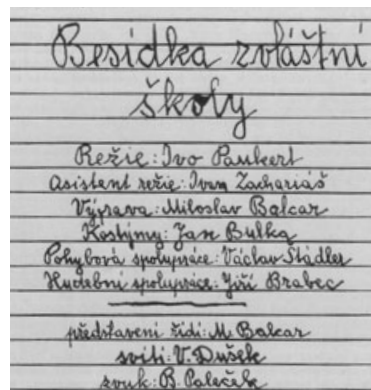 Besídka zvláštní
školy
Režie: Ivo Paukert
Asistent režie: Ivan Zachariáš
Výprava: Miloslav Balcar
Kostýmy: Jan Bulka
Pohybová spolupráce: Václav Štádler
Hudební spolupráce: Jiří Brabec
představení řídí: M. Balcar
svítí: V. Dušek
zvuk: B. Paleček